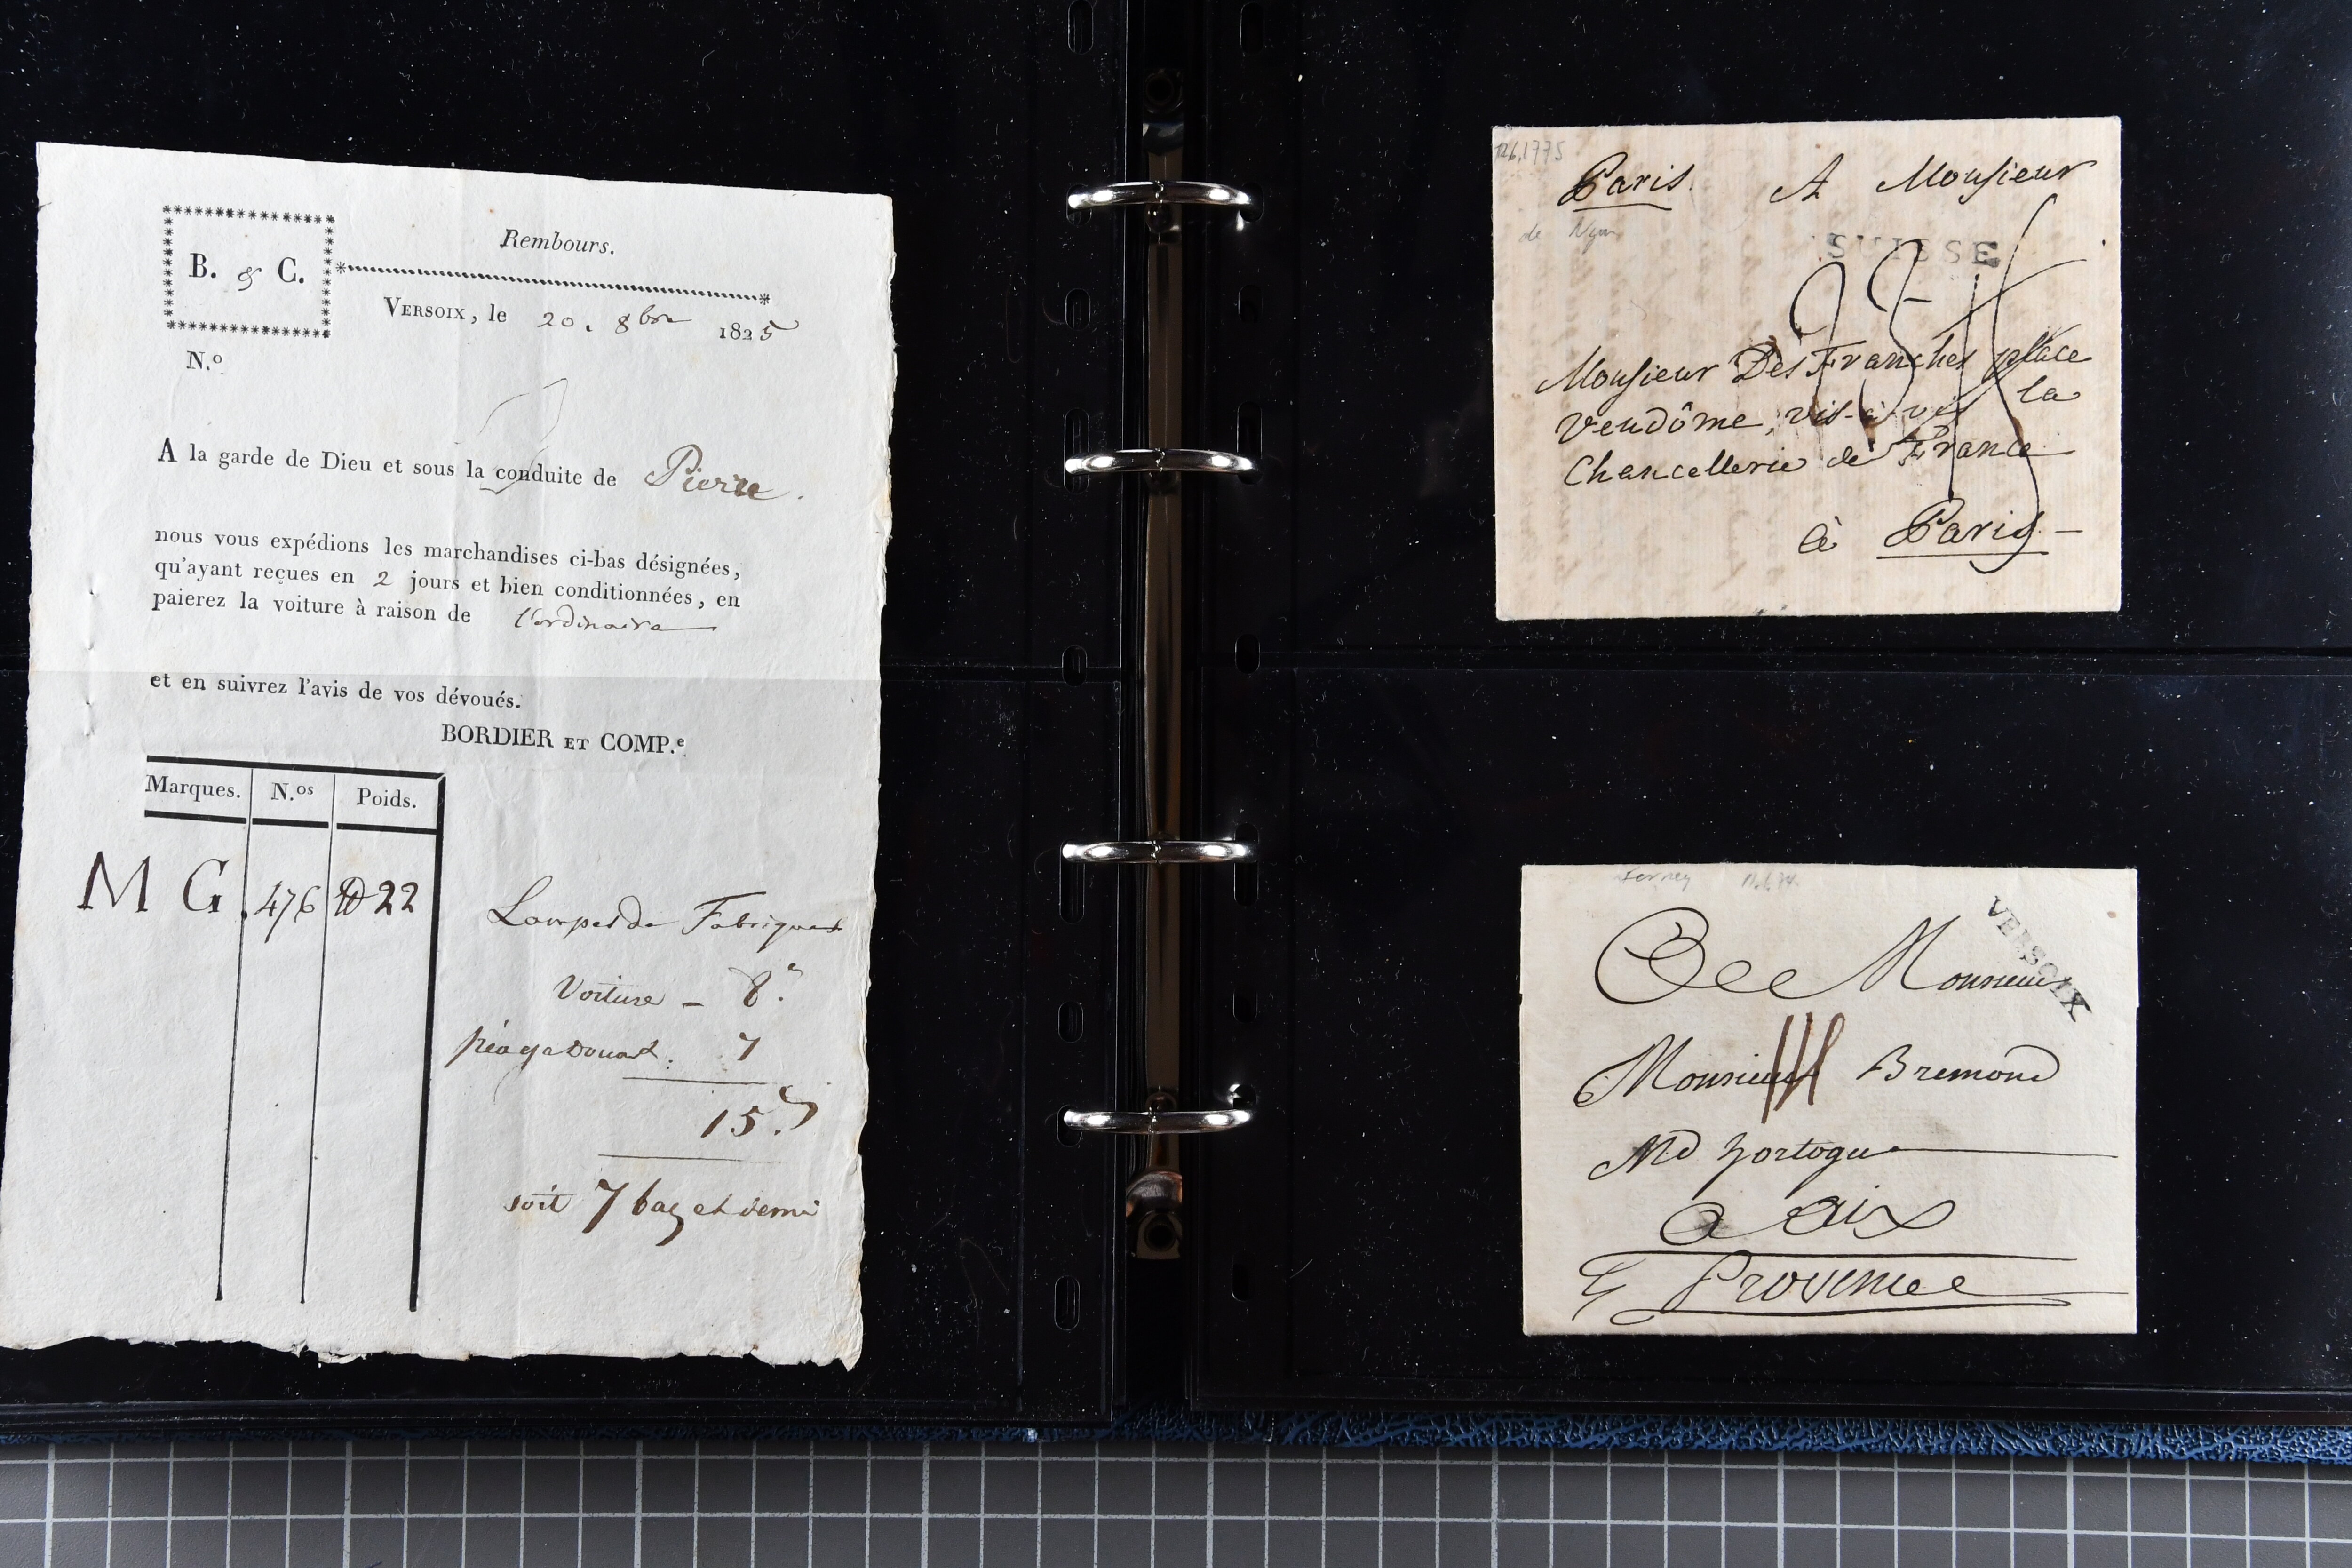 B. & C.
Rembours.
VERSOIX, le 20. 8bre 1825
N.o
A la garde de Dieu et sous la conduite de Pierre.
nous vous expédions les marchandises ci-bas désignées,
qu'ayant reçues en 2 jours et bien conditionnées, en
paierez la voiture à raison de l'ordinaire
et en suivrez l'avis de vos dévoués.
BORDIER ET COMP.e
Marques. N.os Poids.
M G. 476 22
Lampes de Fabriques
Voiture – 8.
7
15.
soit 7 baz et demi
1775
Paris. A Monsieur
de Nyon
SUISSE
Monsieur Des Franches place
Vendôme, vis-à-vis la
Chancellerie de France
à Paris –
Ferney
VERSOIX
A Monsieur
Monsieur Bremond
Md
a aix
Provence